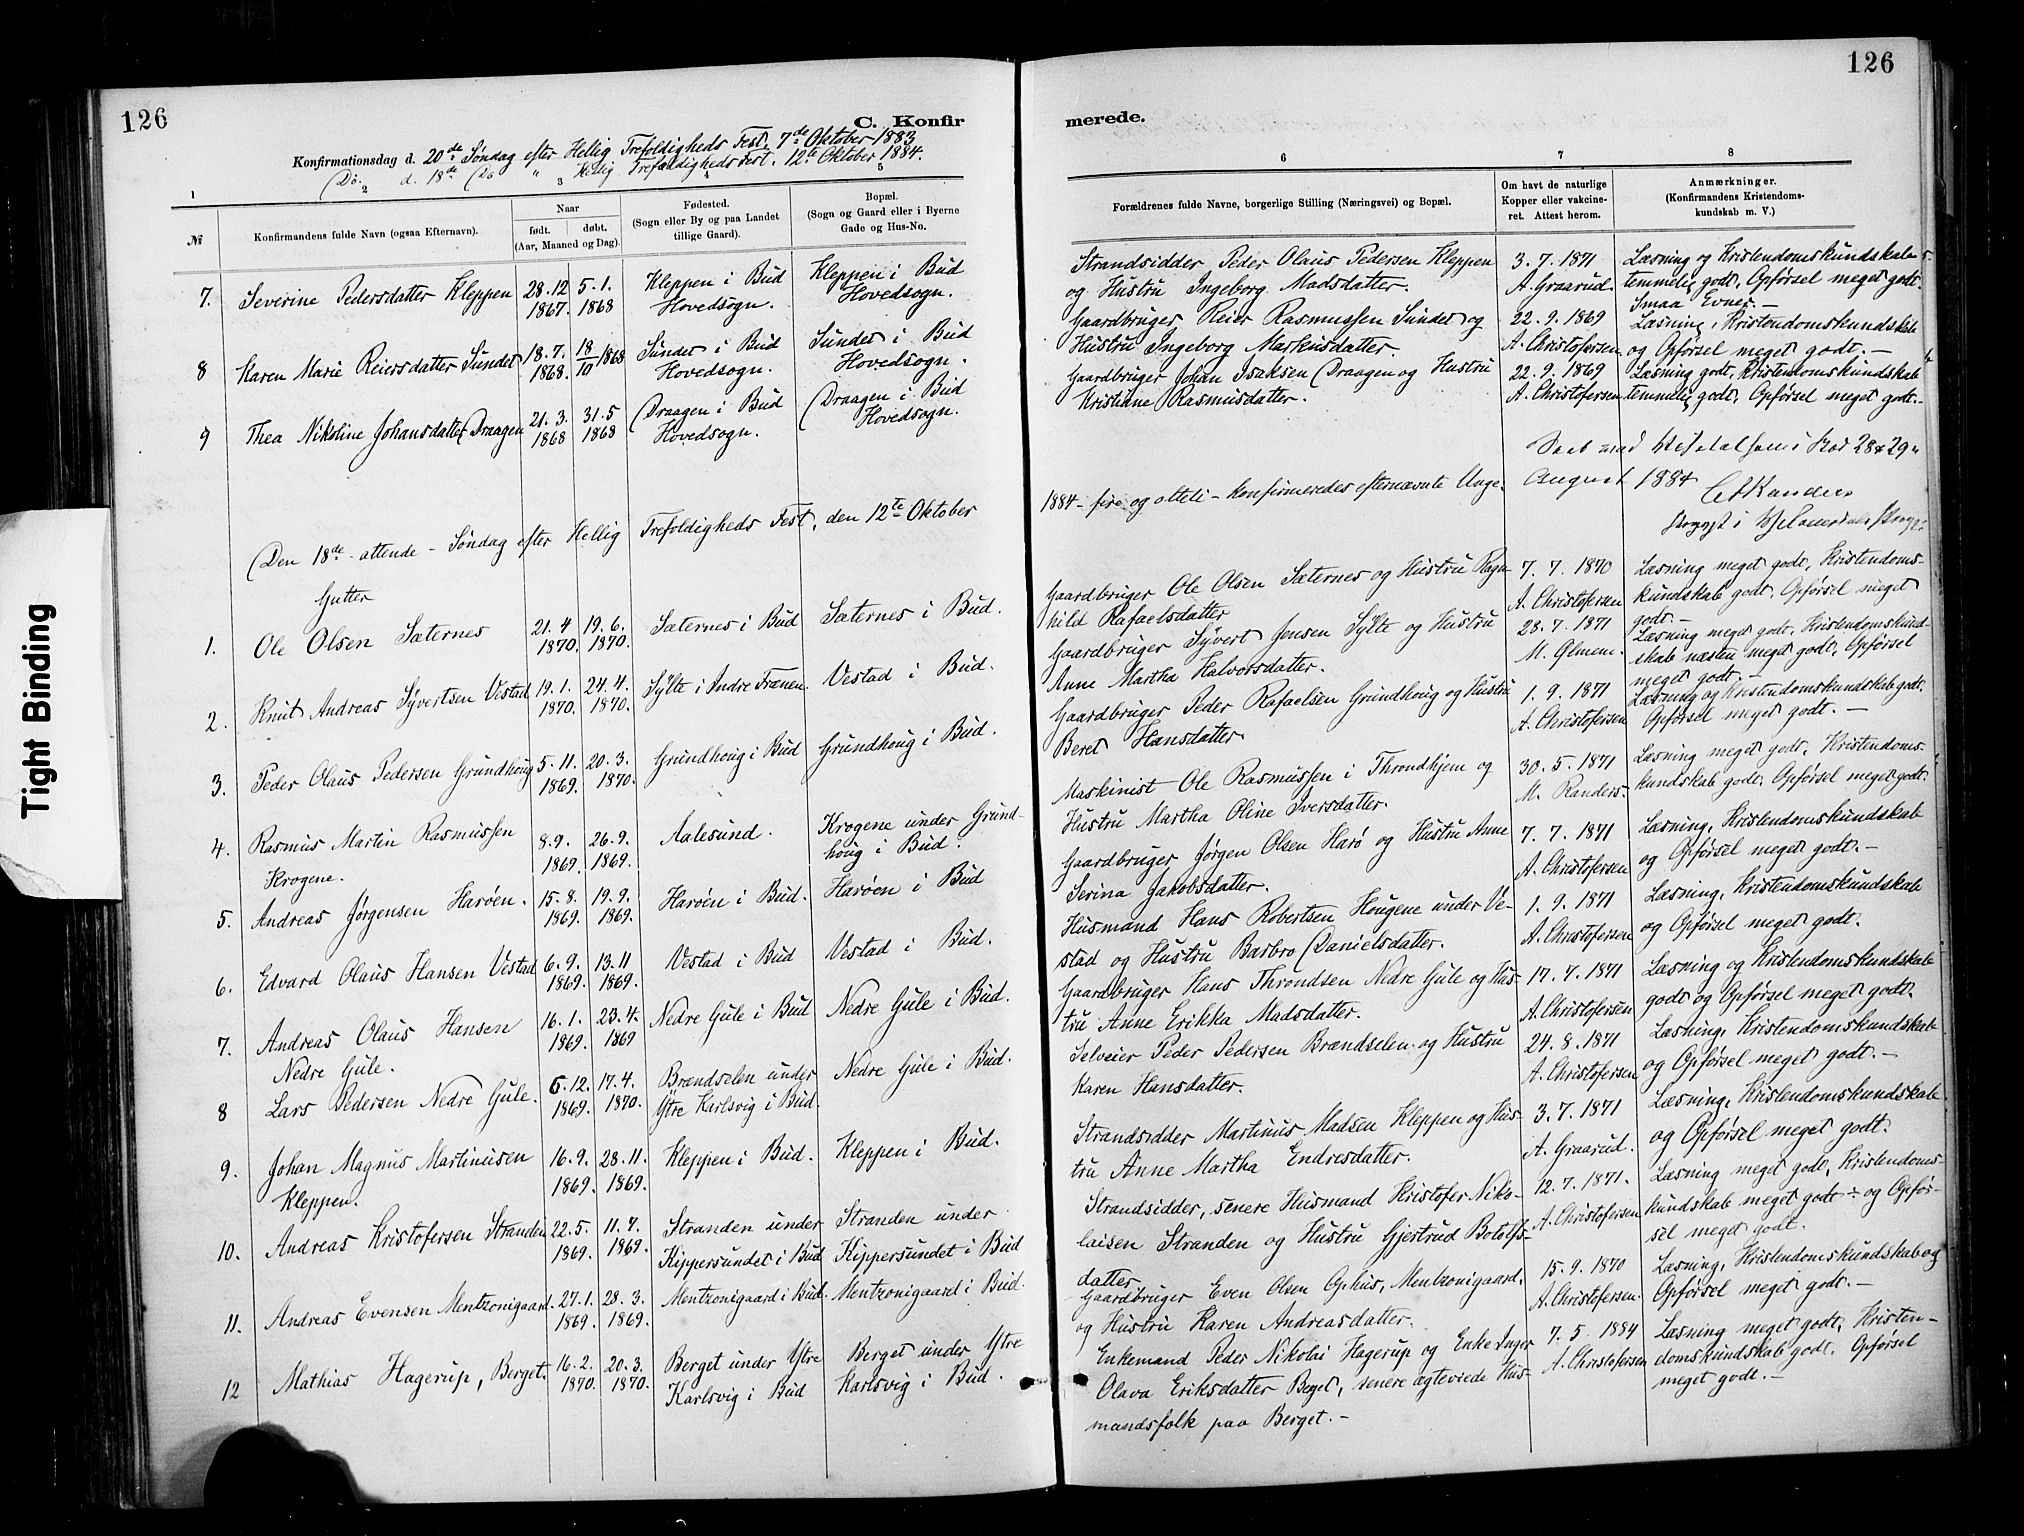 126
C. Konfir
Konfirmationsdag d. 20de Søndag efter Hellig Trefoldigheds Fest. 7de Oktober 1883
Do. d. 18de Do " Hellig Trefoldigheds Fest. 12te Oktober 1884.
1 2 3 4 5
№
Konfirmandens fulde Navn (ogsaa Efternavn).
Naar
født. døbt.
(Aar, Maaned og Dag).
Fødested.
(Sogn eller By og paa Landet
tillige Gaard).
Bopæl.
(Sogn og Gaard eller i Byerne
Gade og Hus-No.
7. Severine Pedersdatter Kleppen 28.12 1867. 5.1. 1868 Kleppen i Bud Hovedsogn. Kleppen i Bud Hovedsogn.
8 Karen Marie Reiersdatter Sundet 18.7. 1868. 18/10 1868 Sundet i Bud Hovedsogn. Sundet i Bud Hovedsogn.
9 Thea Nikoline Johansdatter Draagen 21.3. 1868 31.5 1868 Draagen i Bud Hovedsogn. Draagen i Bud Hovedsogn.
Den 18de - attende - Søndag efter Hellig Trefoldigheds Fest, den 12te Oktober
Gutter
1. Ole Olsen Sæternes 21.4 1870. 19.6. 1870. Sæternes i Bud Sæternes i Bud.
2. Knut Andreas Syvertsen Vestad 19.1. 1870. 24.4. 1870. Sylte i Indre Frænen Vestad i Bud.
3. Peder Olaus Pedersen Grundhoug 5.11. 1869. 20.3. 1870. Grundhoug i Bud Grundhoug i Bud.
4. Rasmus Martin Rasmussen Krogene. 8.9. 1869. 26.9. 1869. Aalesund. Krogene under Grundhoug i Bud.
5. Andreas Jørgensen Harøen. 15.8. 1869. 19.9. 1869. Harøen i Bud. Harøen i Bud
6. Edvard Olaus Hansen Vestad 6.9. 1869. 13.11 1869. Vestad i Bud Vestad i Bud.
7. Andreas Olaus Hansen Nedre Gule. 16.1. 1869. 23.4. 1869 Nedre Gule i Bud Nedre Gule i Bud.
8 Lars Pedersen Nedre Gule. 6.12. 1869. 17.4. 1870. Brændselen under Ytre Karlsvig i Bud. Nedre Gule i Bud.
9. Johan Magnus Martinusen Kleppen. 16.9. 1869. 28.11. 1869. Kleppen i Bud. Kleppen i Bud.
10. Andreas Kristofersen Stranden 22.5. 1869. 11.7. 1869. Stranden under Kippersundet i Bud Stranden under Kippersundet i Bud
11. Andreas Evensen Mentzonigaard. 27.1. 1869. 28.3. 1869. Mentzonigaard i Bud. Mentzonigaard i Bud.
12 Mathias Hagerup, Berget. 16.2. 1870. 20.3. 1870. Berget under Ytre Karlsvig i Bud Berget under Ytre Karlsvig i Bud.
126
merede.
6 7 8
Forældrenes fulde Navne, borgerlige Stilling (Næringsvei) og Bopæl.
Om havt de naturlige
Kopper eller vakcine-
ret. Attest herom.
Anmærkninger.
(Konfirmandens Kristendoms-
kundskab m. V.)
Strandsidder Peder Olaus Pedersen Kleppen og Hustru Ingeborg Madsdatter. 3.7.1871 A. Graarud. Læsning og Kristendomskundskab temmelig godt, Opførsel meget godt. Smaa Evner.-
Gaardbruger Reier Rasmussen Sundet og Hustru Ingeborg Markusdatter. 22.9.1869 A. Christofersen Læsning, Kristendomskundskab og Opførsel meget godt.-
Gaardbruger Johan Isaksen Draagen og Hustru Kristiane Rasmusdatter. 22.9.1869 A. Christofersen Læsning godt, Kristendomskundskab temmelig godt, Opførsel meget godt.-
August 1884
1884 - fire og otteti - konfirmeredes efternævnte Unge.
Gaardbruger Ole Olsen Sæternes og Hustru Ragnhild Rafaelsdatter 7.7.1870 A. Christofersen Læsning meget godt, Kristendomskundskab godt. Opførsel meget godt.-
Gaardbruger Syvert Jensen Sylte og Hustru Anne Martha Halvorsdatter. 28.7.1871 M. Glmem. Læsning meget godt, Kristendomskundskab næsten meget godt, Opførsel meget godt.-
Gaardbruger Peder Rafaelsen Grundhoug og Hustru Beret Hansdatter 1.9.1871 A. Christofersen Læsning og Kristendomskundskab godt. Opførsel meget godt.-
Maskinist Ole Rasmussen i Throndhjem og Hustru Martha Oline Iversdatter. 30.5.1871 M. Randers. Læsning meget godt, Kristendomskundskab godt. Opførsel meget godt.
Gaardbruger Jørgen Olsen Harø og Hustru Anne Serina Jakobsdatter. 7.7.1871 A. Christofersen Læsning, Kristendomskundskab og Opførsel meget godt.-
Husmand Hans Robertsen Hougene under Vestad og Hustru Barbro Danielsdatter. 1.9.1871 A. Christofersen Læsning, Kristendomskundskab og Opførsel meget godt.
Gaardbruger Hans Throndsen Nedre Gule og Hustru Anne Erikka Madsdatter. 17.7.1871 A. Christofersen Læsning og Kristendomskundskab godt og Opførsel meget godt.
Selveier Peder Pedersen Brændselen og Hustru Karen Hansdatter. 24.8.1871 A. Christofersen Læsning, Kristendomskundskab og Opførsel meget godt.-
Strandsidder Martinus Madsen Kleppen og Hustru Anne Martha Endresdatter. 3.7.1871 A. Graarud. Læsning, Kristendomskundskab og Opførsel meget godt.
Strandsidder, senere Husmand Kristofer Nikolaisen Stranden og Hustru Gjertrud Botolfsdatter 12.7.1871. A. Christofersen Læsning meget godt, Kristendomskundskab meget godt - og Opførsel meget godt.
Gaardbruger Even Olsen Ophus, Mentzonigaard, og Hustru Karen Andreasdatter. 15.9.1870 A. Christofersen. Læsning, Kristendomskundskab og Opførsel meget godt.-
Enkemand Peder Nikolai Hagerup og Enke Inger Olava Eriksdatter Berget, senere ægteviede Husmandsfolk paa Berget.- 7.5.1884 A. Christofersen Læsning meget godt, Kristendomskundskab godt. Opførsel meget godt.-
Tight Binding